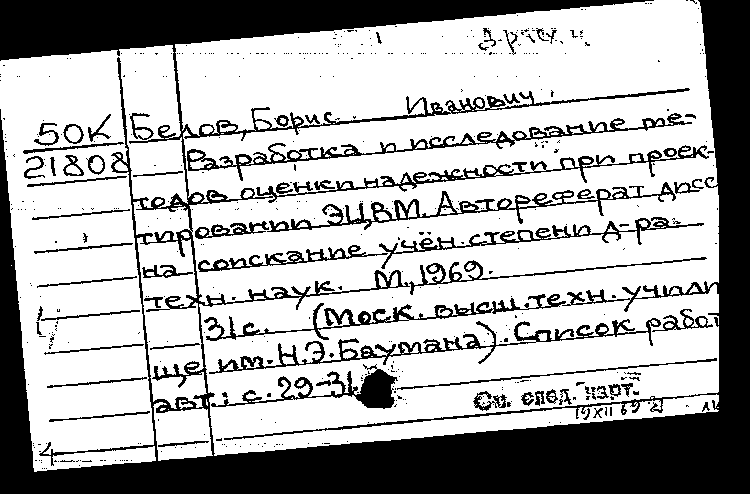 Д-р техн
50К Белов, Борис Иванович.
21808 Разработка и исследование ме-
тодов оценки надежности при проек-
тировании ЭЦВМ. Автореферат дисс
на соискание учён. степени д-ра.
техн. наук. М., 1969.
31с. (Моск. высш. техн. учили
ще им. Н.Э. Баумана). Список работ
авт.: с. 29-31.
См. след. карт.
19 XII 69
4